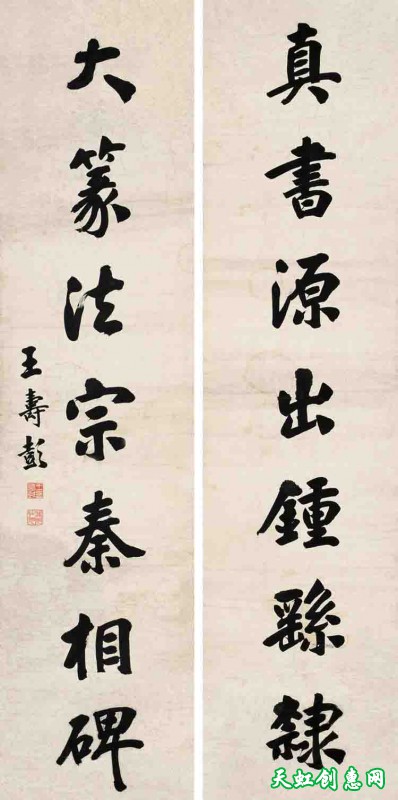 真書源出鍾繇隸
大篆法宗秦相碑
王壽彭
天虹创惠网